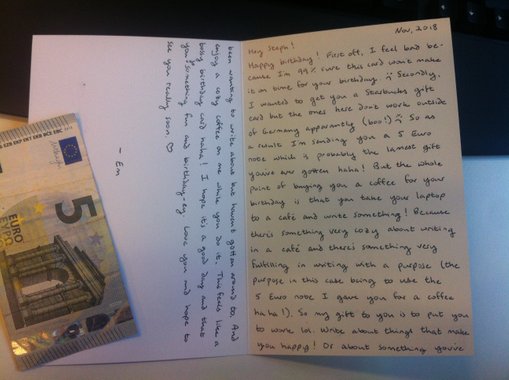 Nov, 2018
Hey Steph!
Happy birthday! First off, I feel bad be-
cause I'm 99% sure this card won't make
it on time for your birthday. Secondly,
I wanted to get you a Starbucks gift
card but the ones here don't work outside
of Germany apparently (boo!) So as
a result I'm sending you a 5 Euro
note which is probably the lamest gift
you've ever gotten haha! But the whole
point of buying you a coffee for your
birthday is that you take your laptop
to a café and write something! Because
there's something very cozy about writing
in a café and there's something very
fulfilling in writing with a purpose (the
purpose in this case being to use the
5 Euro note I gave you for a coffee
haha!). So my gift to you is to put you
to work lol. Write about things that make
you happy! Or about something you've
been wanting to write about but haven't gotten around to. And
enjoy a cozy coffee on me while you do it. This feels like a
bossy birthday card haha! I hope it's a good day and that
you do something fun and birthday-ey. Love you and hope to
see you really soon ♡
- Em
5
EURO
ΕΥΡΩ